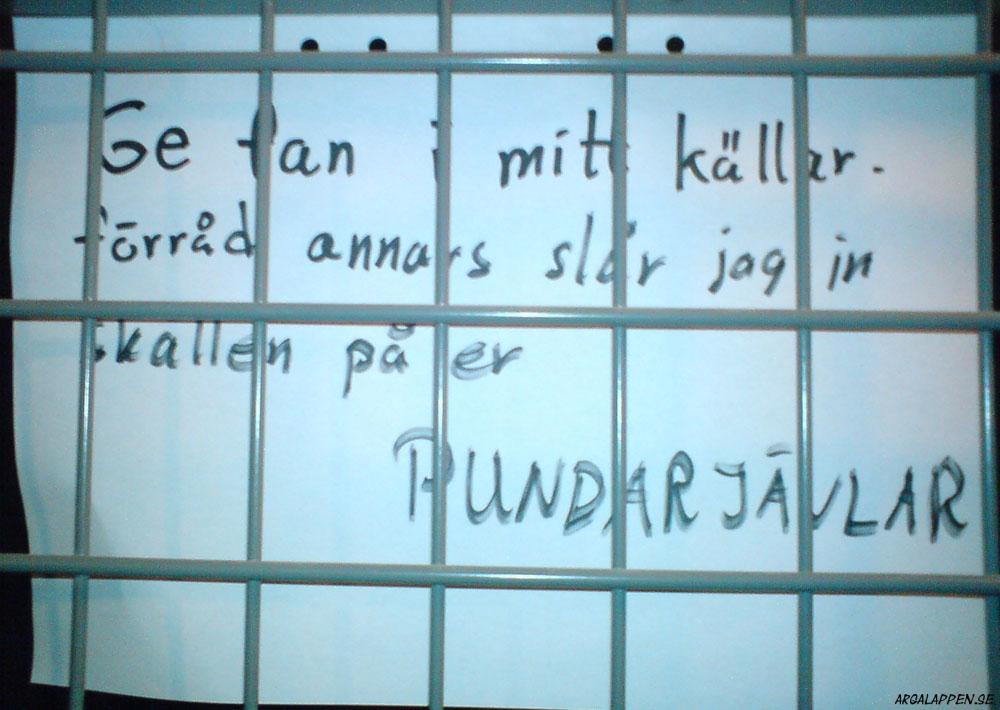 Ge fan i mitt källar-
förråd annars slår jag in
skallen på er
PUNDARJÄVLAR
ARGALAPPEN.SE